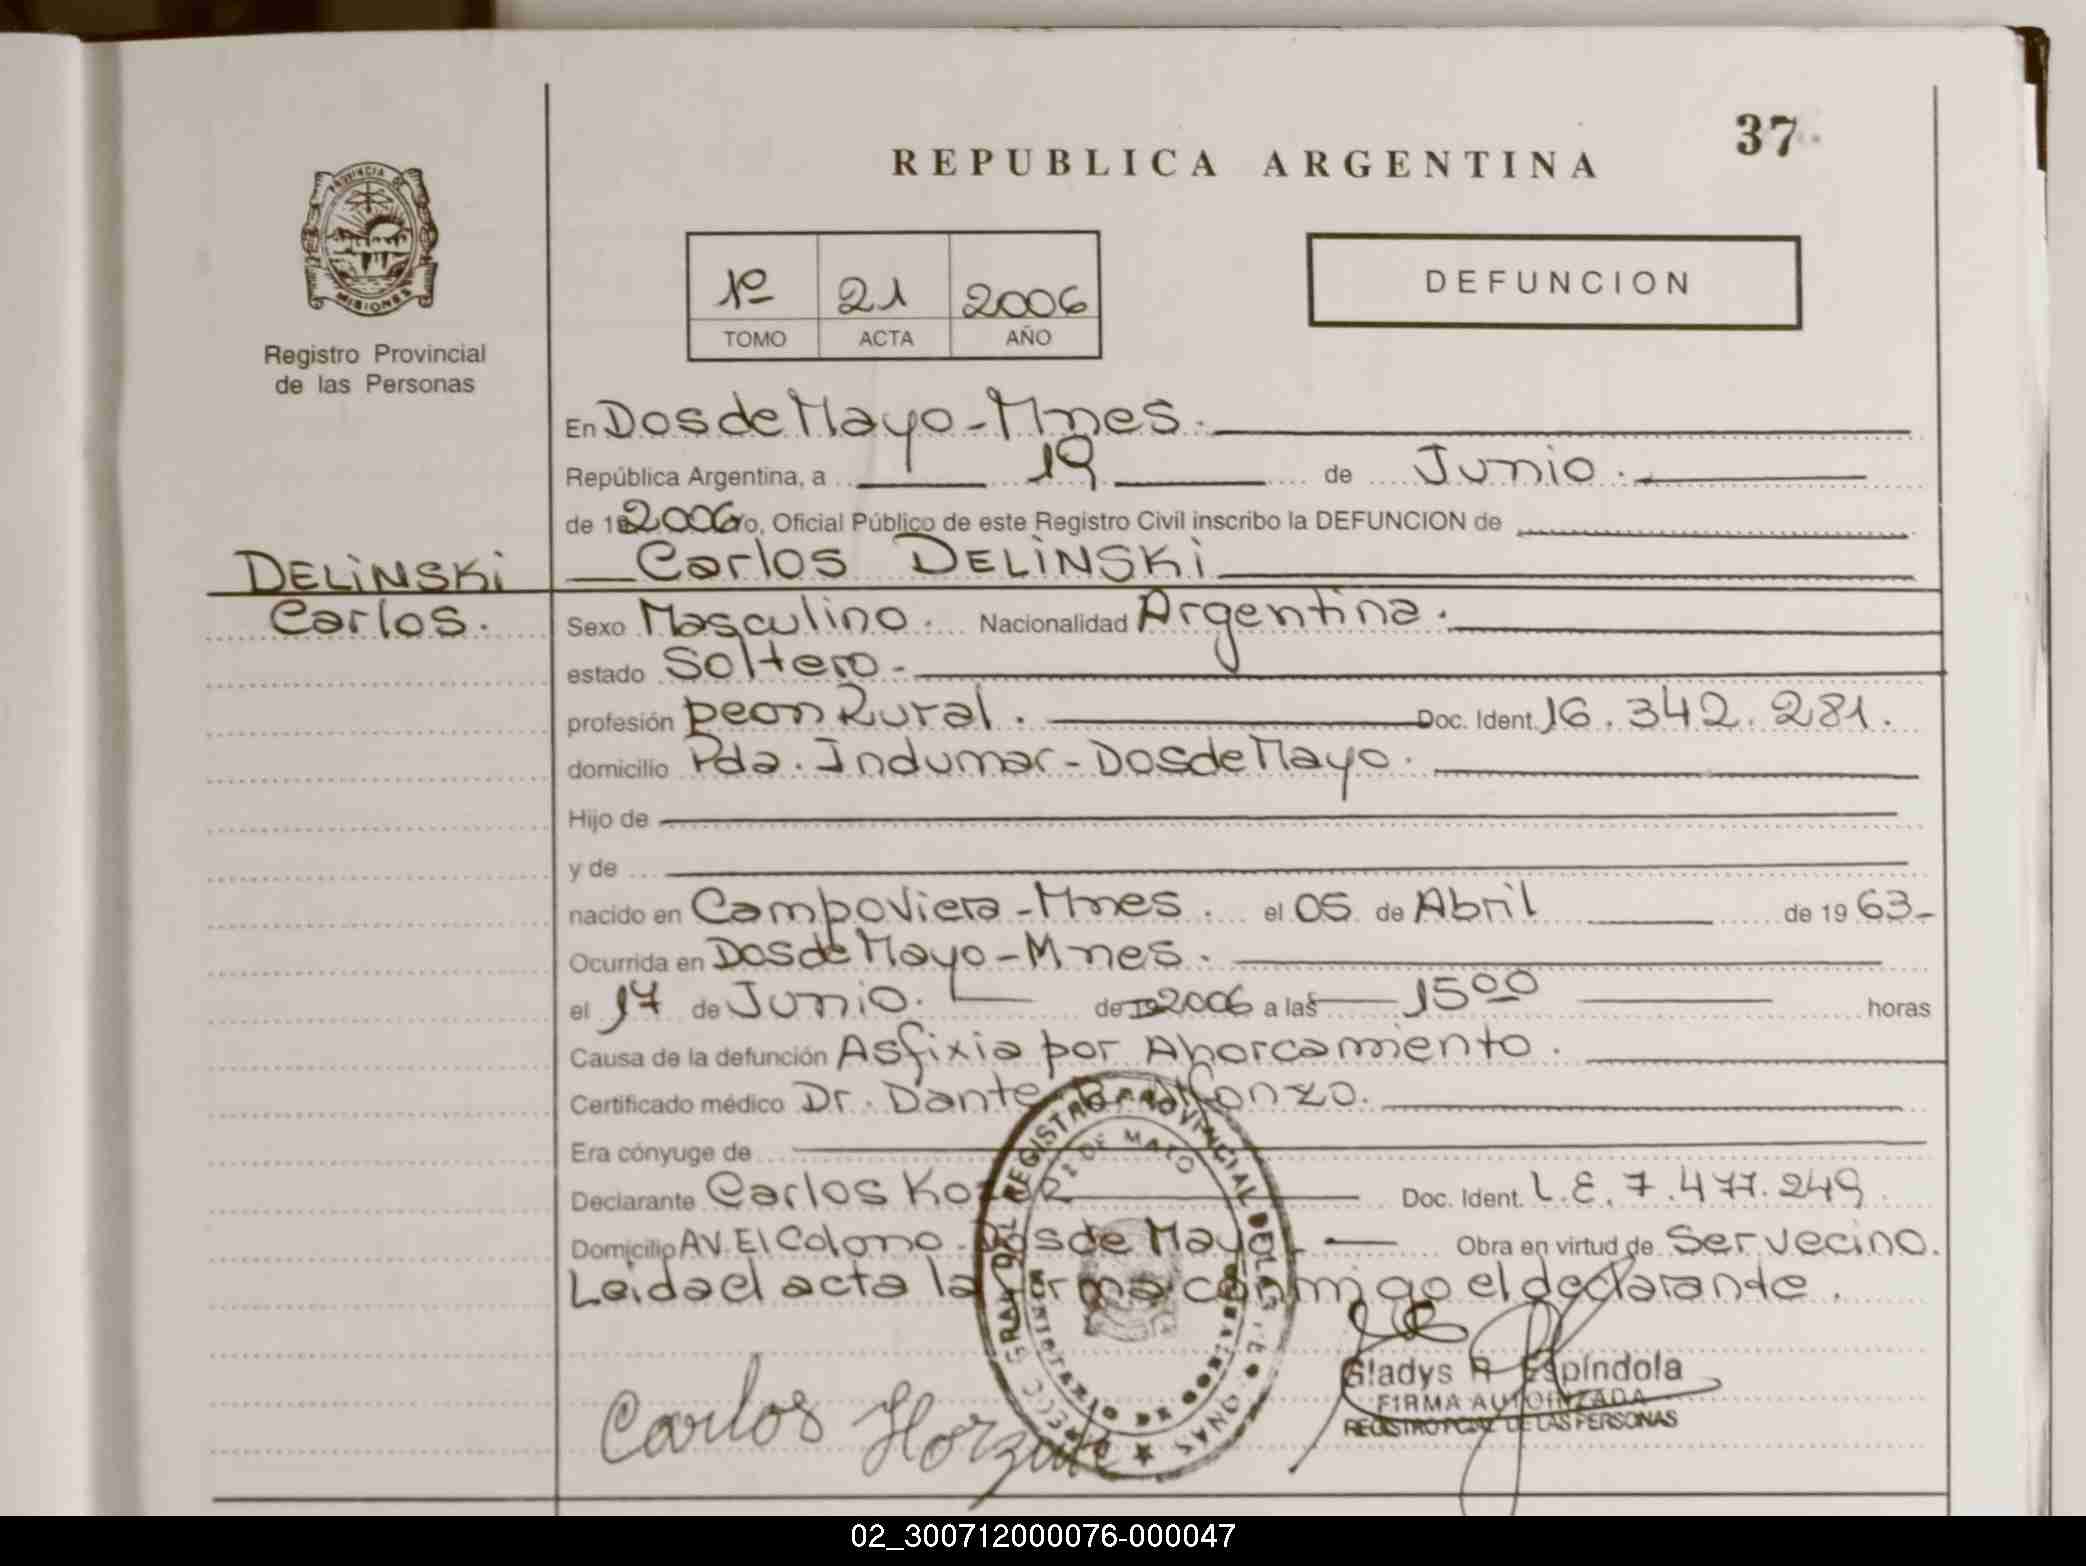 37
REPUBLICA ARGENTINA
PROVINCIA DE
MISIONES
Registro Provincial
de las Personas
1º 21 2006
TOMO ACTA AÑO
DEFUNCION
En Dos de Mayo - Mnes.
República Argentina, a 19 de Junio.
de 2006 yo, Oficial Público de este Registro Civil inscribo la DEFUNCION de
DELINSKI Carlos DELINSKI
Carlos. Sexo Masculino. Nacionalidad Argentina.
estado Soltero -
profesión peon Rural. Doc. Ident. 16.342.281.
domicilio Pda. Indumar - Dos de Mayo.
Hijo de
y de
nacido en Campo Viera - Mnes. el 05 de Abril de 1963 -
Ocurrida en Dos de Mayo - Mnes.
el 17 de Junio. de 2006 a las 15ºº horas
Causa de la defunción Asfixia por Ahorcamiento.
Certificado médico Dr. Dante
Era cónyuge de
Declarante Carlos Doc. Ident. L.E. 7.477.249
Domicilio AV. El Colono - Dos de Mayo. Obra en virtud de Ser vecino.
Leida el acta la firma conmigo el declarante.
REGISTRO PROVINCIAL DE LAS
2 DE MAYO
Carlos
Gladys R Espíndola
FIRMA AUTORIZADA
REGISTRO PCIAL DE LAS PERSONAS
02_300712000076-000047